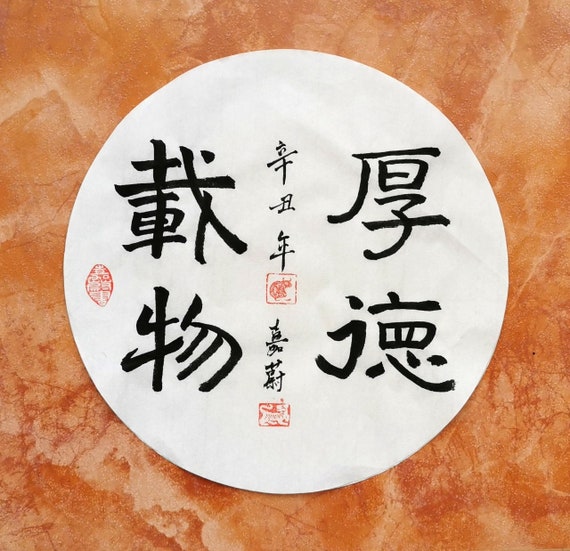 厚德
載物
辛丑年
嘉蔚